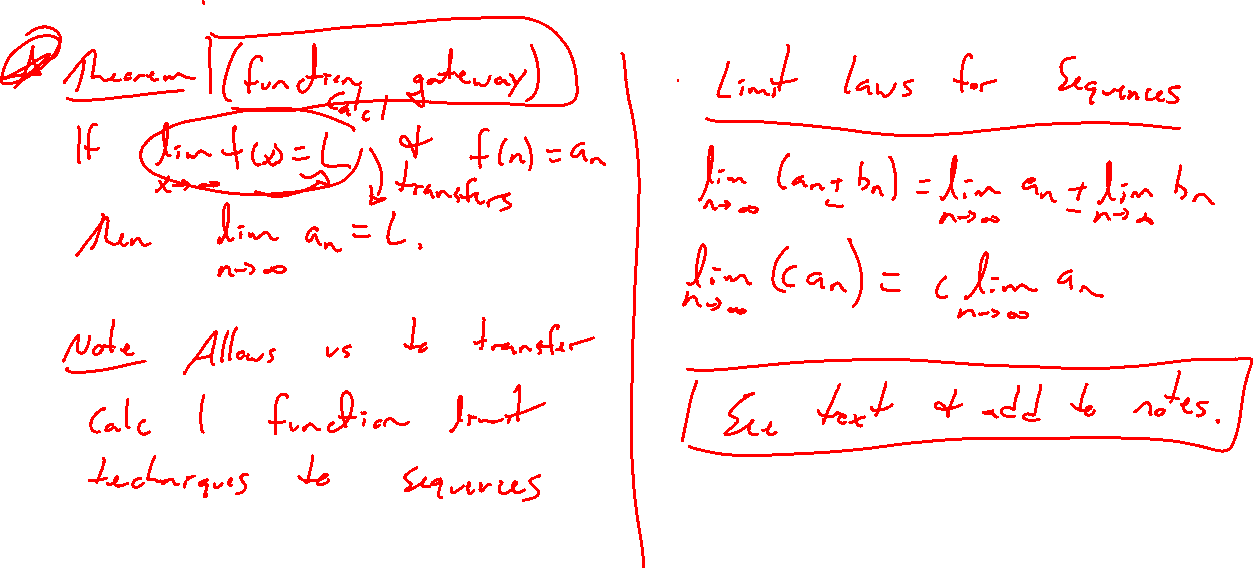 Theorem (function gateway)
Calc 1
If lim x→∞ f(x) = L & f(n) = aₙ
transfers
Then lim n→∞ aₙ = L.
Note Allows us to transfer
Calc 1 function limit
techniques to sequences
Limit laws for Sequences
lim n→∞ (aₙ ± bₙ) = lim n→∞ aₙ ± lim n→∞ bₙ
lim n→∞ (c aₙ) = c lim n→∞ aₙ
See text & add to notes.